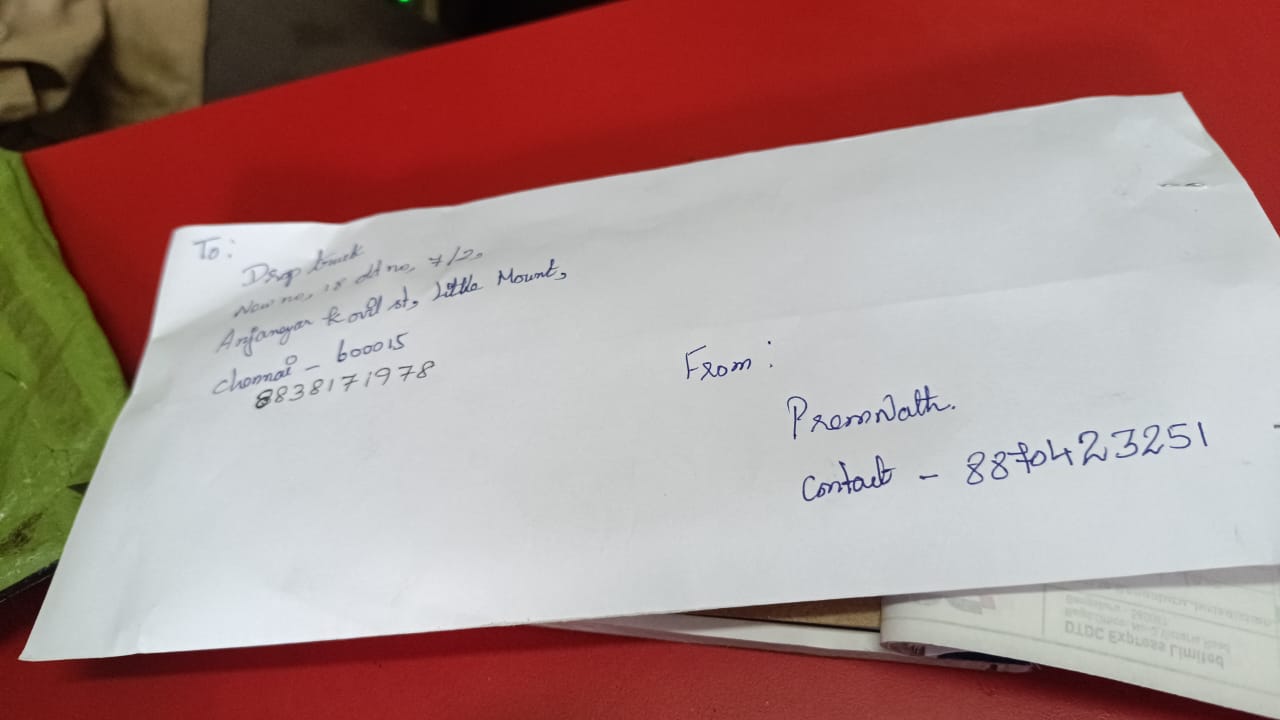 To:
Drop truck
New no, 18 old no, 7/2,
Anjaneyar kovil st, Little Mount,
Chennai - 600015
8838171978
From:
PremNath.
Contact - 8870423251
DTDC Express Limited